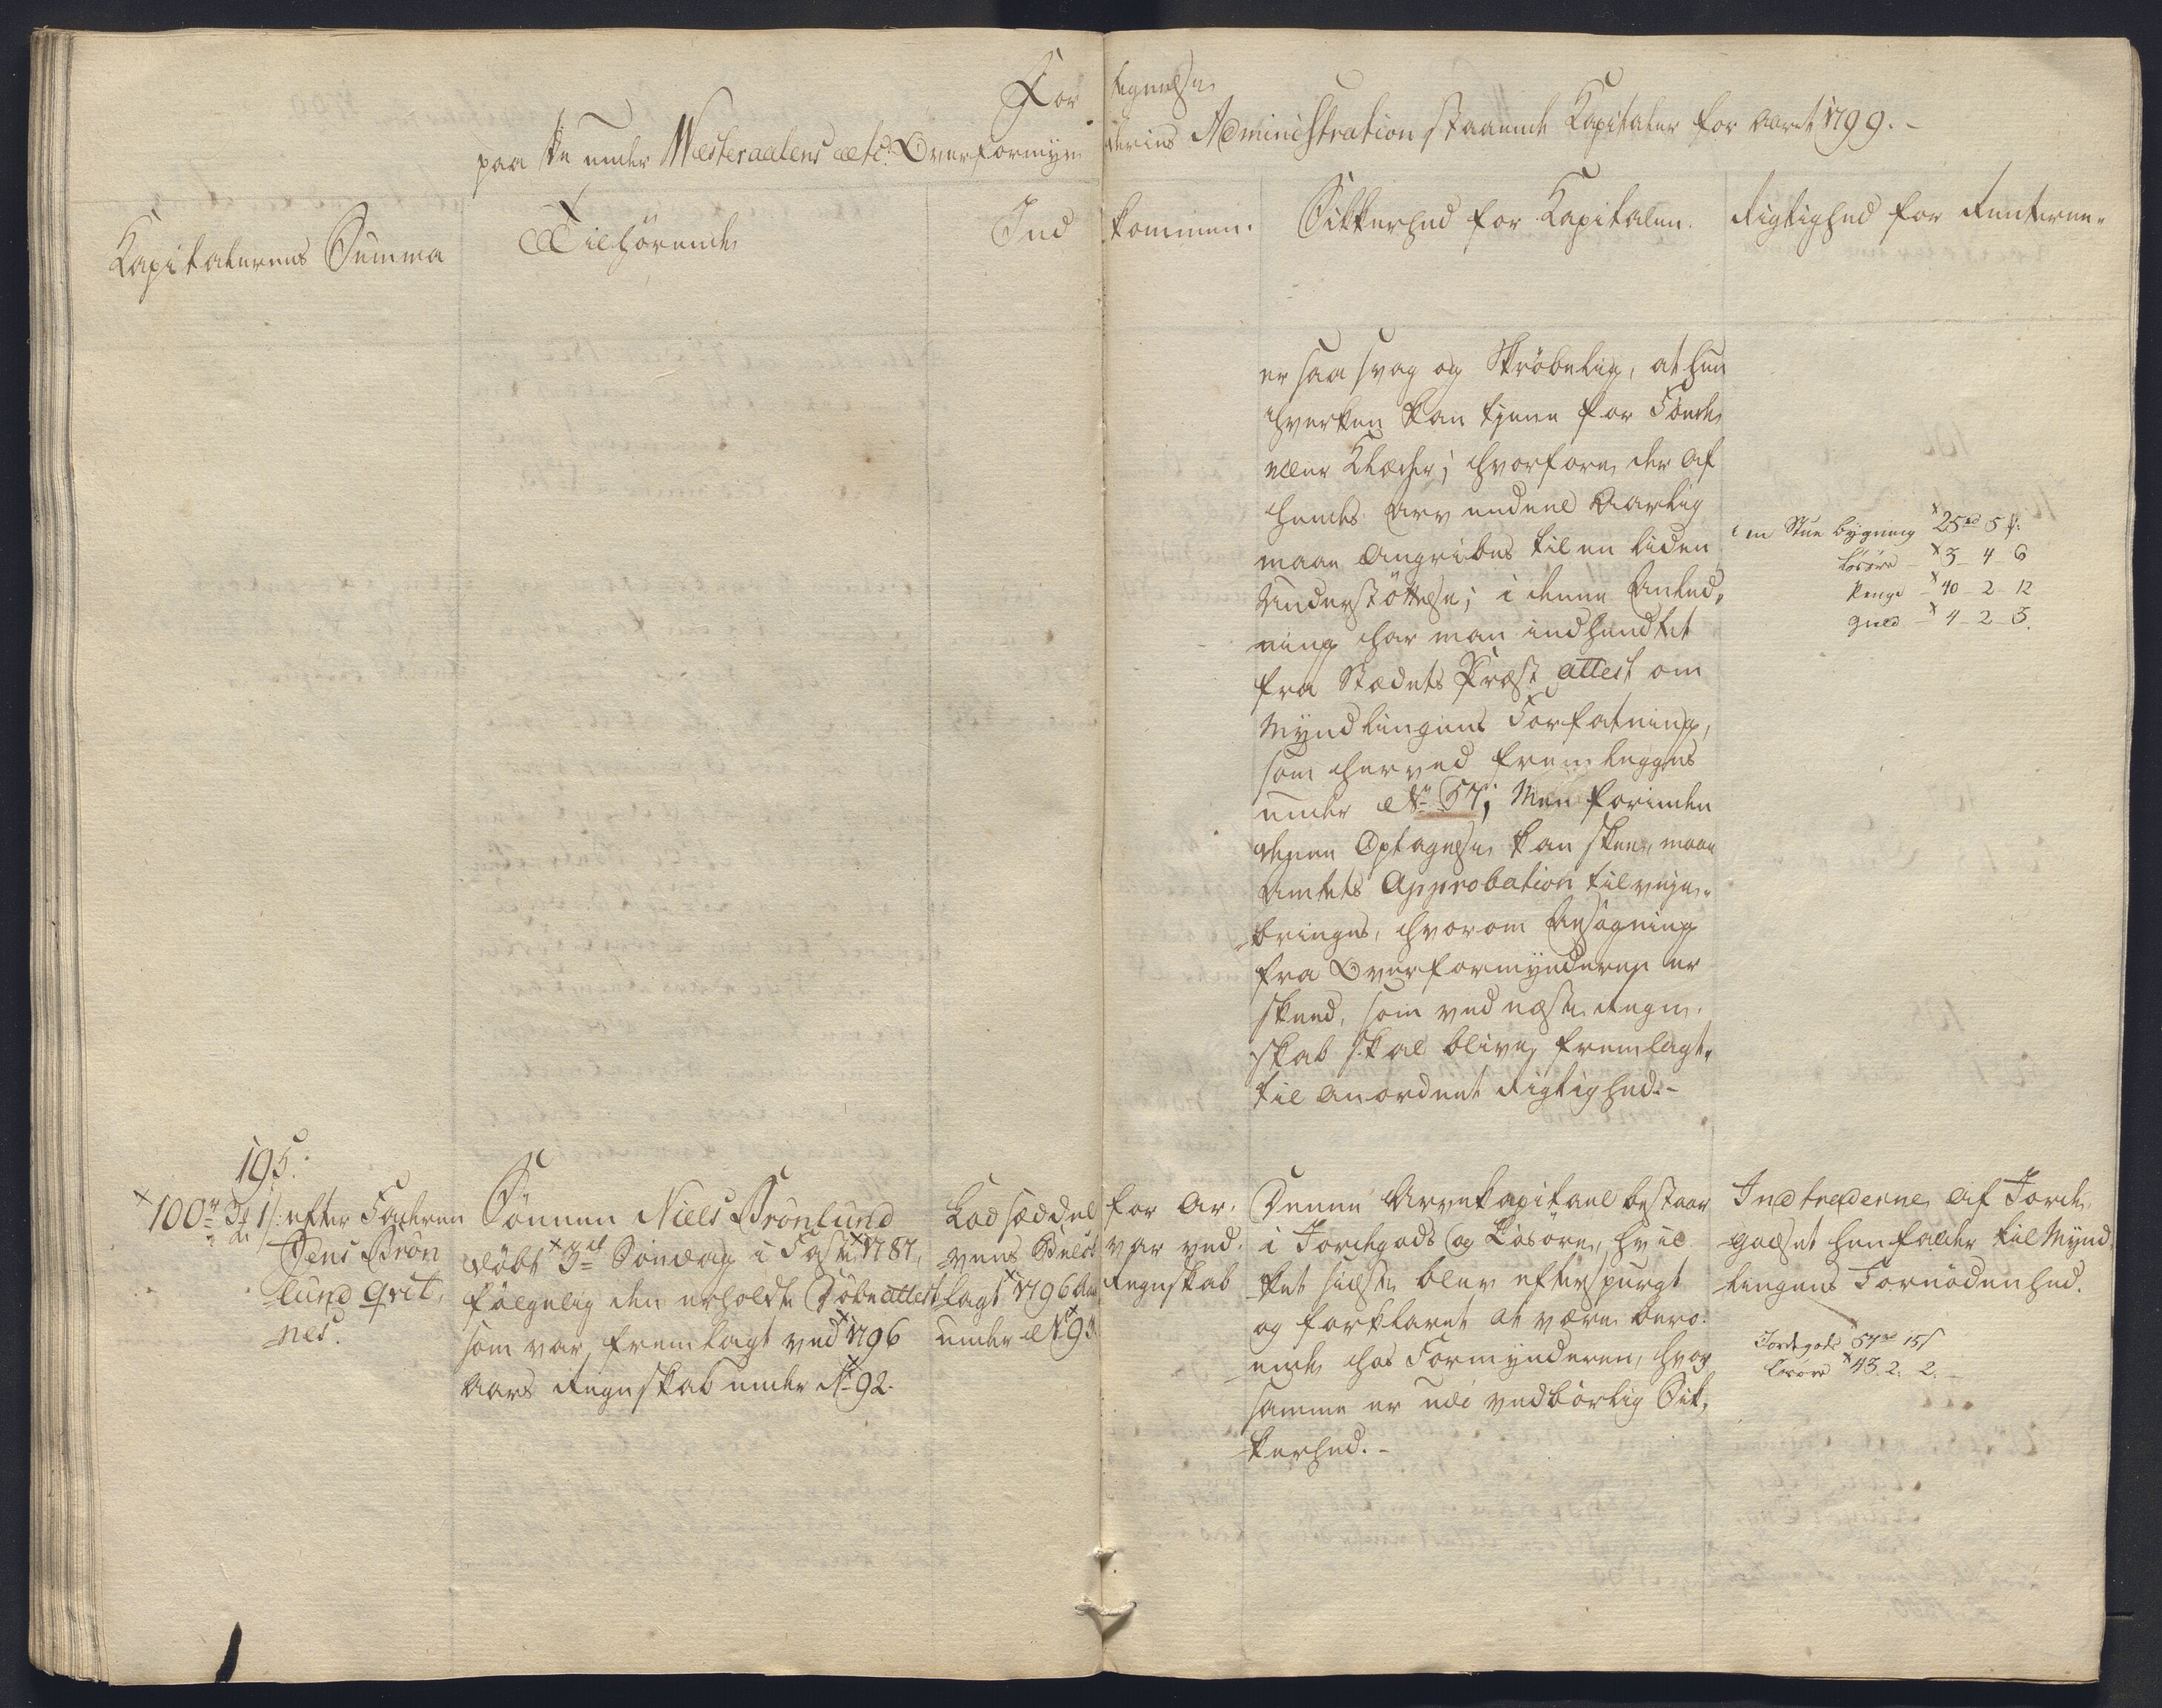 Fortegnelse
paa de under Westeraalens etc. Overformynderies Administration staaende Kapitaler for Aaret 1799.
Kapitalernes Summa
Tilhørende
Indkommen.
Sikkerhed for Kapitalen.
Rigtighed for Renterne.
er saa svag og Skrøbelig, at hun
hverken kan tjene for Føde
eller Klæder; hvorfore der af
hendes Arv endeel Aarlig
maae Angribes til en liden
Understøttelse; i denne Anled-
ning har man indhendtet
fra Stedets Præst attest om
Myndlingens Forfatning,
som herved fremlegges
under No 57; Men forinden
denne Optagelse kan skee, maae
Amtets Approbation tilveje-
bringes, hvorom Ansøgning
fra Overformynderen er
skeed, som ved næste Regn-
skab skal blive fremlagt
til anordnet Rigtighed.-
en Stue bygning 25 rd 5 s:
Løsøre - 3 - 4 - 6
Penge - 40 - 2 - 12
guld - 4 - 2 - 3.
195.
100 rd 3 f 1 s: efter Faderen
Jens Brøn
lund Qvit
nes.
Sønnen Niels Brønlund
døbt 3die Søndag i Faste 1787,
følgelig den erholdte Døbe attest
som var fremlagt ved 1796
Aars Regnskab under No 92.
Lodseddel for Ar-
vens Beløb var ved-
lagt 1796 Aars Regnskab
under No 93.
Denne Arvekapital bestaar
i Jordegods og Løsøre, hvil-
ket sidste blev efterspurgt
og forklaret at være bero-
ende hos Formynderen, hvor
samme er udi vedbørlig Sik-
kerhed.-
Indtræderne af Jorde-
godset henfalder til Mynd-
lingens Fornødenhed.
Jordegods 57 rd 15 s
Løsøre 43. 2. 2.